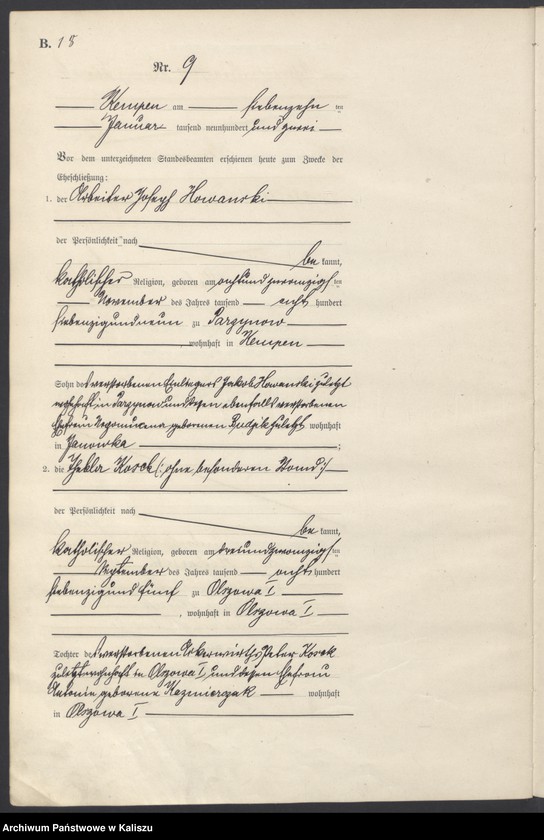 B. 18
Nr. 9
Kempen am siebenzehn ten
Januar tausend neunhundert und zwei
Vor dem unterzeichneten Standesbeamten erschienen heute zum Zwecke der
Eheschließung:
1. der Arbeiter Joseph Nowanski
der Persönlichkeit nach
be kannt,
katholischer Religion, geboren am acht und zwanzigs ten
November des Jahres tausend acht hundert
siebenzig und neun zu
wohnhaft in Kempen
Sohn des verstorbenen Einliegers Jakob Nowanski zuletzt
wohnhaft in und dessen ebenfalls verstorbenen
Ehefrau geborenen zuletzt wohnhaft
in Janowka ;
2. die Thekla Kosek (: ohne besonderen Stand :)
der Persönlichkeit nach
be kannt,
katholischer Religion, geboren am drei und zwanzigs ten
September des Jahres tausend acht hundert
siebenzig und fünf zu Olszowa I
, wohnhaft in Olszowa I
Tochter des verstorbenen Ackerwirths Peter Kosek
zuletzt wohnhaft in Olszowa I und dessen Ehefrau
Antonie geborene Kazmierczak wohnhaft
in Olszowa I
Archiwum Państwowe w Kaliszu